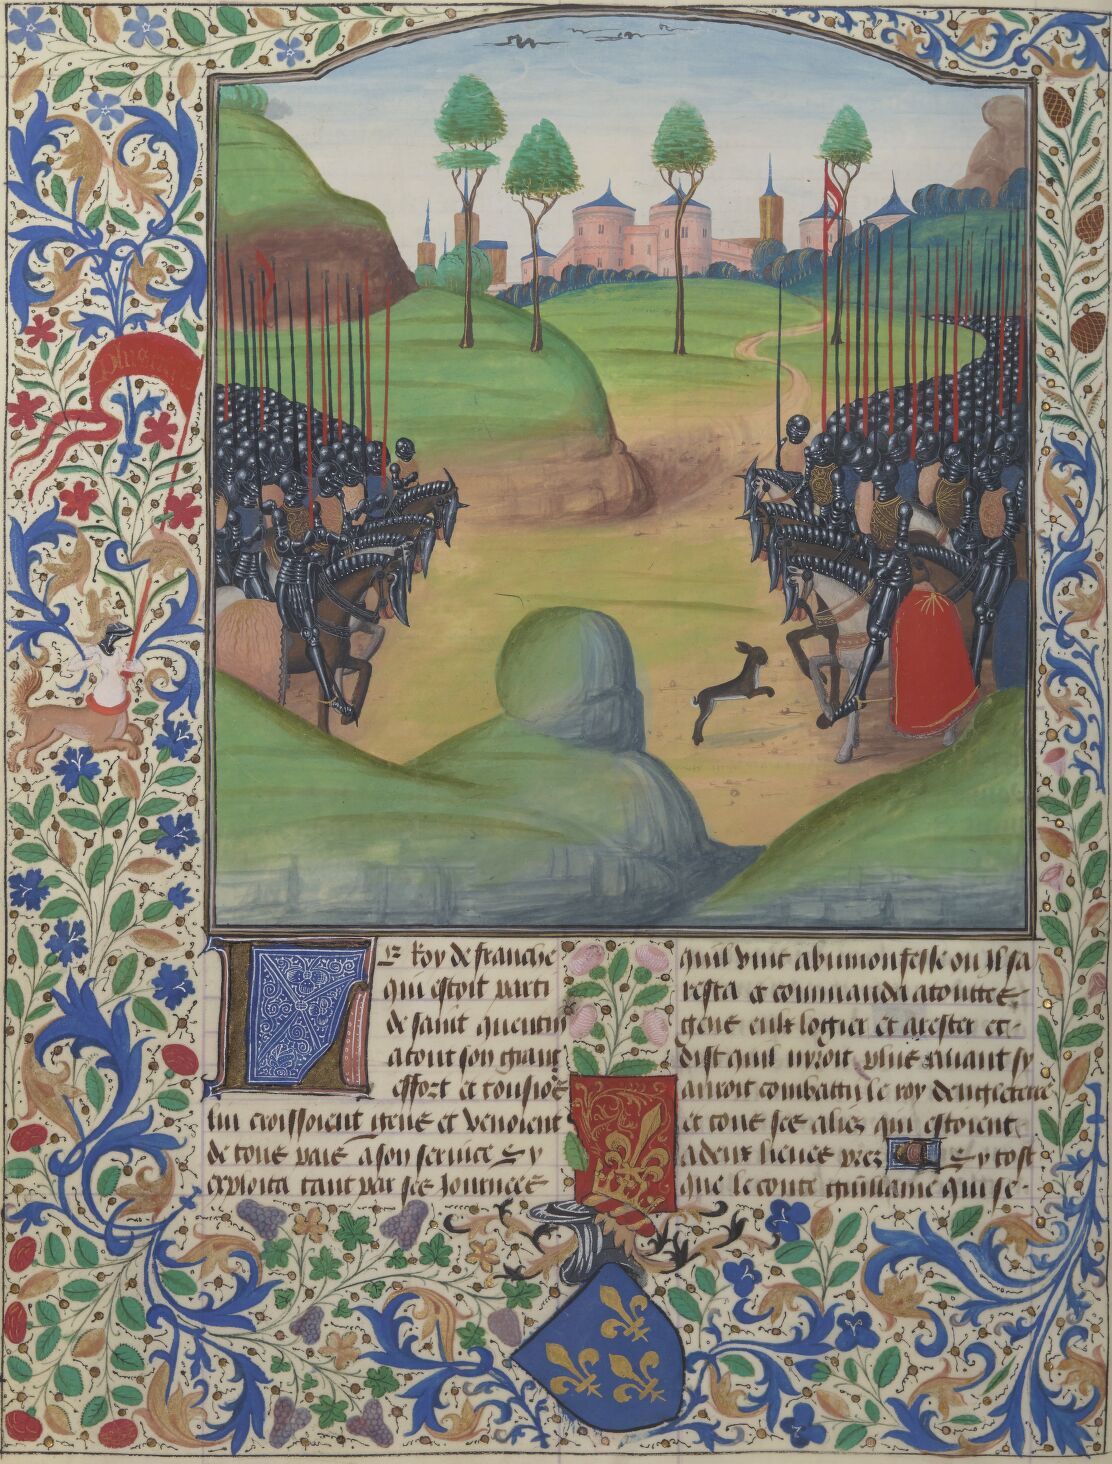 Le Roy de franche
qui estoit parti
de saint quentin
a tout son grant
effort et tousiors
lui croissoient gens et venoient
de tous pais a son service Sy
exploita tant par ses Journees
quil vint a buironfesse ou Jl sa
resta et commanda a toutes
gens eulx logier et arester et
dist quil nyroit plus avant sy
auroit combattu le roy dengleterre
et tous ses aliez qui estoient
a deux lieues pres Sy tost
que le conte guillame qui se